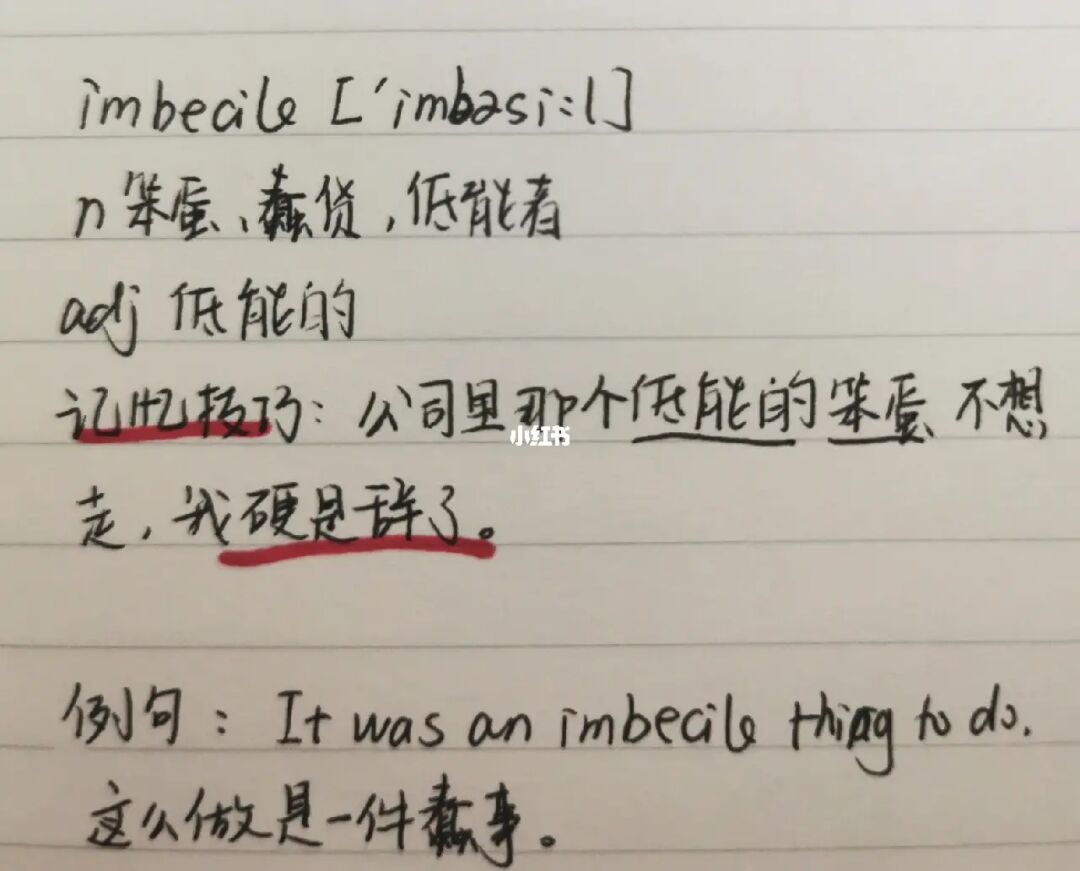 imbecile ['imbəsi:l]
n 笨蛋、蠢货,低能者
adj 低能的
记忆技巧: 公司里那个低能的笨蛋不想
小红书
走,我硬是辞了。
例句: It was an imbecile thing to do.
这么做是一件蠢事。